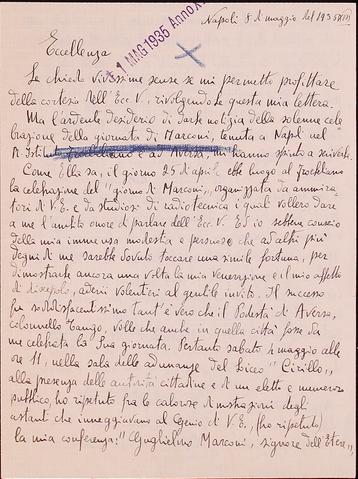 Napoli 8 di maggio del 1935 XIII
1 MAG 1935 Anno X
Eccellenza
Le chiedo vivissime scuse se mi permetto profittare
della cortesia dell'Ecc. V., rivolgendole questa mia lettera.
Ma l'ardente desiderio di darle notizia della solenne cele
brazione della giornata di Marconi, tenuta a Napoli nel
R. Istituto Froebeliano e ad Aversa, mi hanno spinto a scriverle.
Come Ella sa, il giorno 25 di aprile ebbe luogo al froebeliano
la celebrazione del "giorno di Marconi", organizzata da ammira
tori di V. E. e da studiosi di radiotecnica i quali vollero dare
a me l'ambito onore di parlare dell'Ecc. V. Ed io sebbene conscio
della mia immensa modestia e persuaso che ad altri più
degni di me sarebbe dovuto toccare una simile fortuna, per
dimostrarle ancora una volta la mia venerazione e il mio affetto
di discepolo, aderii volentieri al gentile invito. Il successo
fu soddisfacentissimo tant'è vero che il Podestà di Aversa,
colonnello Tango, volle che anche in quella città fosse da
me celebrata la Sua giornata. Pertanto sabato 4 maggio alle
ore 11, nella sala delle adunanze del Liceo "Cirillo",
alla presenza delle autorità cittadine e di un eletto e numeroso
pubblico, ho ripetuto fra le calorose dimostrazioni degli
astanti che inneggiavano al Genio di V. E. (ho ripetuto)
la mia conferenza: "Guglielmo Marconi, signore dell'Etere",